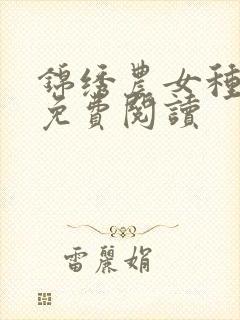 錦绣農女種
免費閱讀
雷麗娟